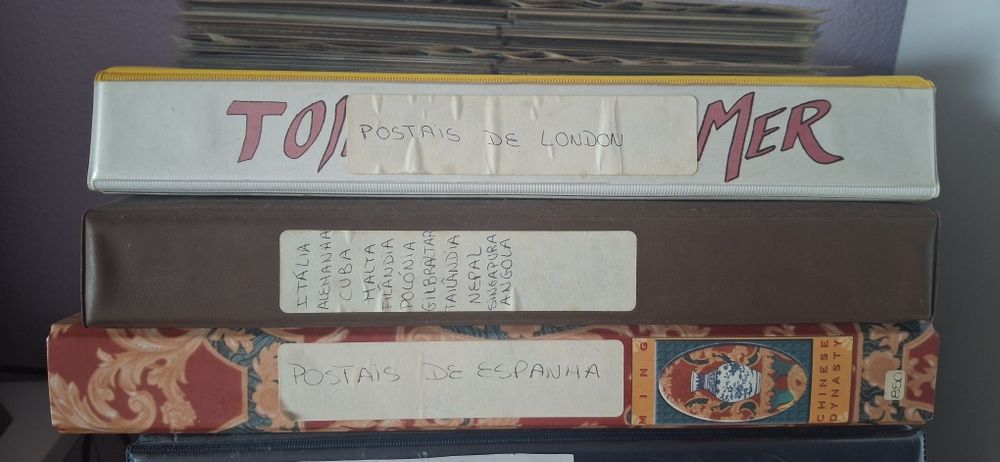 POSTAIS DE LONDON
MER
ITÁLIA
ALEMANHA
CUBA
MALTA
FILÂNDIA
POLÓNIA
GILBRALTAR
TAILÂNDIA
NEPAL
SINGAPURA
ANGOLA
POSTAIS DE ESPANHA
MING
CHINESE
DYNASTY
850